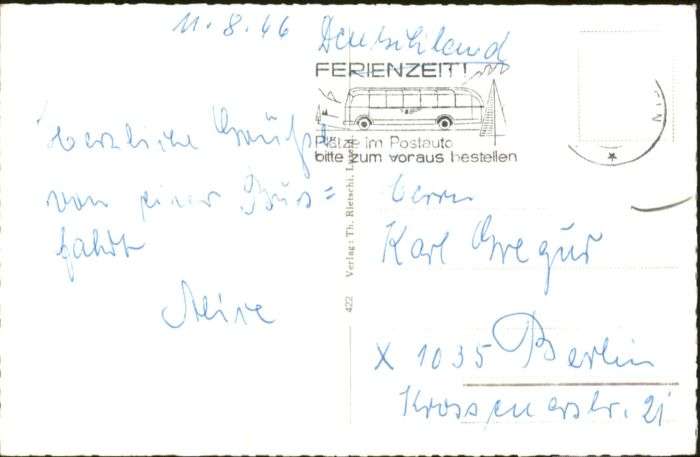 11.8.66 Deutschland
FERIENZEIT!
Plätze im Postauto
bitte zum voraus bestellen
Herzliche Grüße
von einer Bus=
fahrt
Verlag: Th. Rietschi,
422
Herrn
Karl Gregur
X 1035 Berlin
Krossenerstr. 21